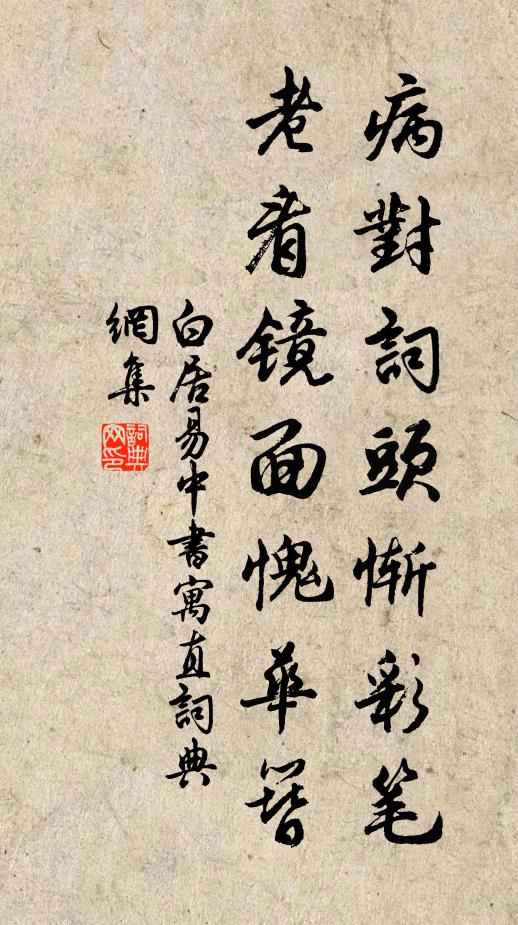 病對詞頭慚彩笔
老看镜面愧華簪
白居易中書寓直詞典
網集
詞典
网印